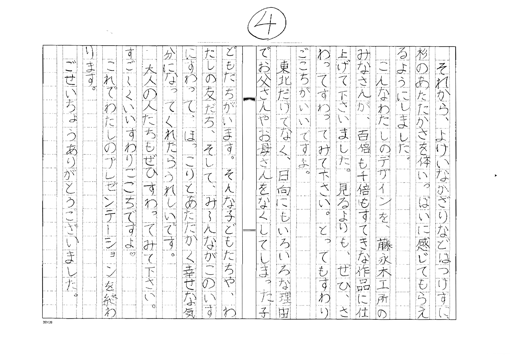 ④
それから、よけいなかざりなどはつけずに
杉のあたたかさを体いっぱいに感じてもらえ
るようにしました。
こんなわたしのデザインを、藤永木工所の
みなさんが、百倍も千倍もすてきな作品に仕
上げて下さいました。見るよりも、ぜひ、さ
わってすわってみて下さい。とってもすわり
ごこちがいいですよ。
東北だけでなく、日向にもいろいろな理由
でお父さんやお母さんをなくしてしまった子
どもたちがいます。そんな子どもたちや、わ
たしの友だち、そして、み〜んながこのいす
にすわって、ほっこりとあたたかく幸せな気
分になってくれたらうれしいです。
大人の人たちもぜひすわってみて下さい。
すご〜くいいすわりごこちですよ。
これでわたしのプレゼンテーションを終わ
ります。
ごせいちょうありがとうございました。